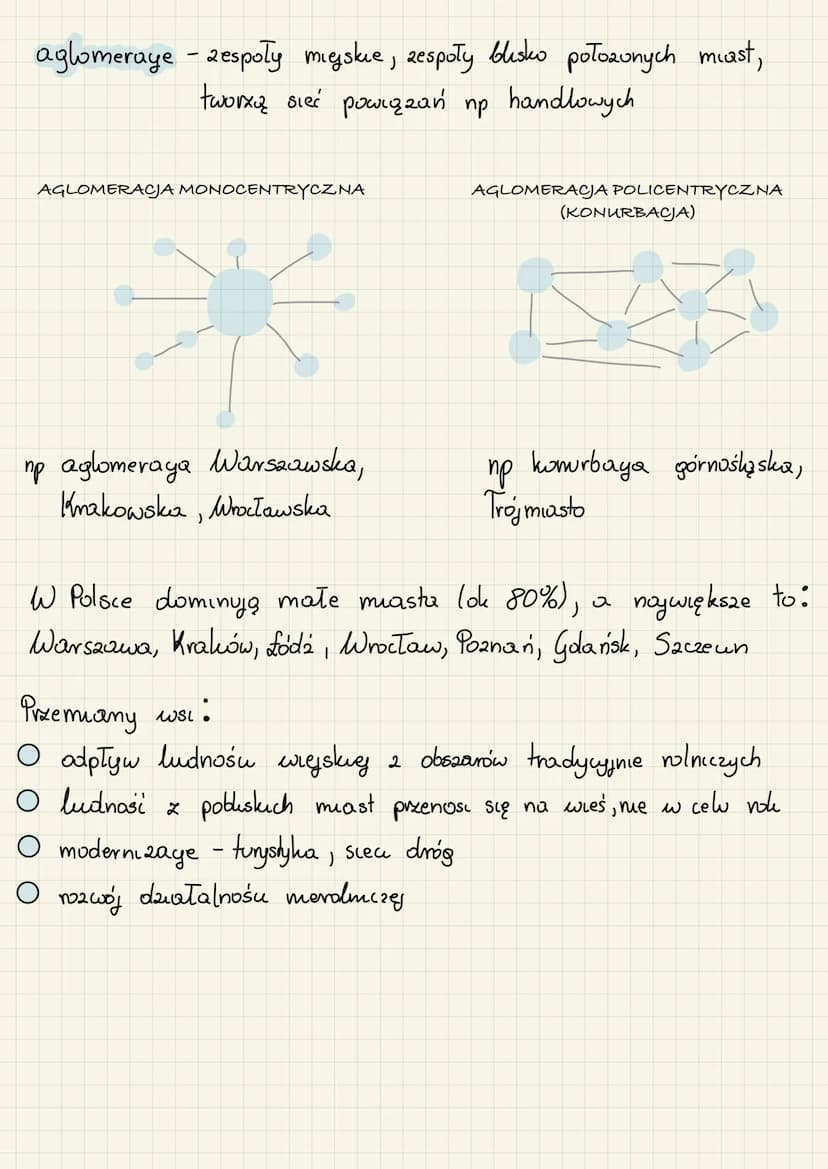 aglomeracje - zespoły miejskie, zespoły blisko położonych miast,
tworzą sieć powiązań np handlowych
AGLOMERACJA MONOCENTRYCZNA
AGLOMERACJA POLICENTRYCZNA
(KONURBACJA)
np aglomeracja Warszawska,
Krakowska, Wrocławska
np konurbacja górnośląska,
Trójmiasto
W Polsce dominują małe miasta (ok 80%), a największe to:
Warszawa, Kraków, Łódź, Wrocław, Poznań, Gdańsk, Szczecin
Przemiany wsi:
odpływ ludności wiejskiej z obszarów tradycyjnie rolniczych
ludność z pobliskich miast przenosi się na wieś, nie w celu roli
modernizacje - turystyka, sieci dróg
rozwój działalności nierolniczej